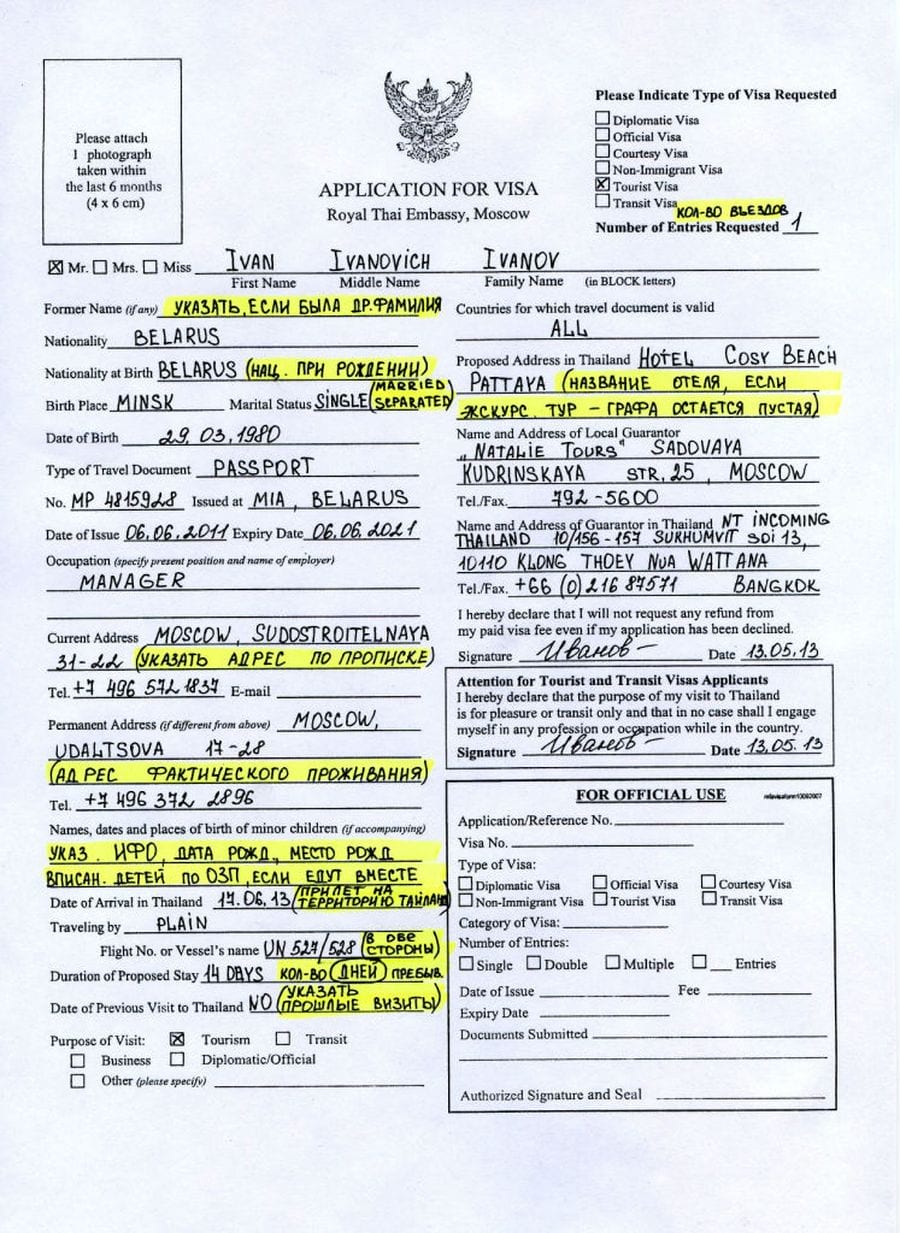 Please attach
1 photograph
taken within
the last 6 months
(4 x 6 cm)
APPLICATION FOR VISA
Royal Thai Embassy, Moscow
Please Indicate Type of Visa Requested
Diplomatic Visa
Official Visa
Courtesy Visa
Non-Immigrant Visa
Tourist Visa
Transit Visa
КОЛ-ВО ВЪЕЗДОВ
Number of Entries Requested 1
Mr. Mrs. Miss IVAN IVANOVICH IVANOV
First Name Middle Name Family Name (in BLOCK letters)
Former Name (if any) УКАЗАТЬ, ЕСЛИ БЫЛА ДР. ФАМИЛИЯ
Nationality BELARUS
Nationality at Birth BELARUS (НАЦ. ПРИ РОЖДЕНИИ)
Birth Place MINSK Marital Status SINGLE (MARRIED SEPARATED)
Date of Birth 29.03.1980
Type of Travel Document PASSPORT
No. MP 4815928 Issued at MIA, BELARUS
Date of Issue 06.06.2011 Expiry Date 06.06.2021
Occupation (specify present position and name of employer)
MANAGER
Current Address MOSCOW, SUDOSTROITELNAYA
31-22 (УКАЗАТЬ АДРЕС ПО ПРОПИСКЕ)
Tel. +7 496 572 1837 E-mail
Permanent Address (if different from above) MOSCOW,
UDALTSOVA 17-28
(АДРЕС ФАКТИЧЕСКОГО ПРОЖИВАНИЯ)
Tel. +7 496 372 2896
Names, dates and places of birth of minor children (if accompanying)
УКАЗ. ИФО, ДАТА РОЖД, МЕСТО РОЖД
ВПИСАН. ДЕТЕЙ ПО ОЗП, ЕСЛИ ЕДУТ ВМЕСТЕ
Date of Arrival in Thailand 17.06.13 (ПРИЛЕТ НА ТЕРРИТОРИЮ ТАИЛАНД
Traveling by PLAIN
Flight No. or Vessel's name UN 527/528 (В ОБЕ СТОРОНЫ)
Duration of Proposed Stay 14 DAYS КОЛ-ВО (ДНЕЙ) ПРЕБЫВ.
Date of Previous Visit to Thailand NO (УКАЗАТЬ ПРОШЛЫЕ ВИЗИТЫ)
Purpose of Visit: Tourism Transit
Business Diplomatic/Official
Other (please specify)
Countries for which travel document is valid
ALL
Proposed Address in Thailand HOTEL COSY BEACH
PATTAYA (НАЗВАНИЕ ОТЕЛЯ, ЕСЛИ
ЭКСКУРС. ТУР - ГРАФА ОСТАЕТСЯ ПУСТАЯ)
Name and Address of Local Guarantor
„NATALIE TOURS" SADOVAYA
KUDRINSKAYA STR. 25, MOSCOW
Tel./Fax. 792-5600
Name and Address of Guarantor in Thailand NT INCOMING
THAILAND 10/156-157 SUKHUMVIT SOI 13,
10110 KLONG THOEY NUA WATTANA
Tel./Fax. +66 (0) 216 87571 BANGKOK
I hereby declare that I will not request any refund from
my paid visa fee even if my application has been declined.
Signature Иванов Date 13.05.13
Attention for Tourist and Transit Visas Applicants
I hereby declare that the purpose of my visit to Thailand
is for pleasure or transit only and that in no case shall I engage
myself in any profession or occupation while in the country.
Signature Иванов Date 13.05.13
FOR OFFICIAL USE
Application/Reference No.
Visa No.
Type of Visa:
Diplomatic Visa Official Visa Courtesy Visa
Non-Immigrant Visa Tourist Visa Transit Visa
Category of Visa:
Number of Entries:
Single Double Multiple Entries
Date of Issue Fee
Expiry Date
Documents Submitted
Authorized Signature and Seal